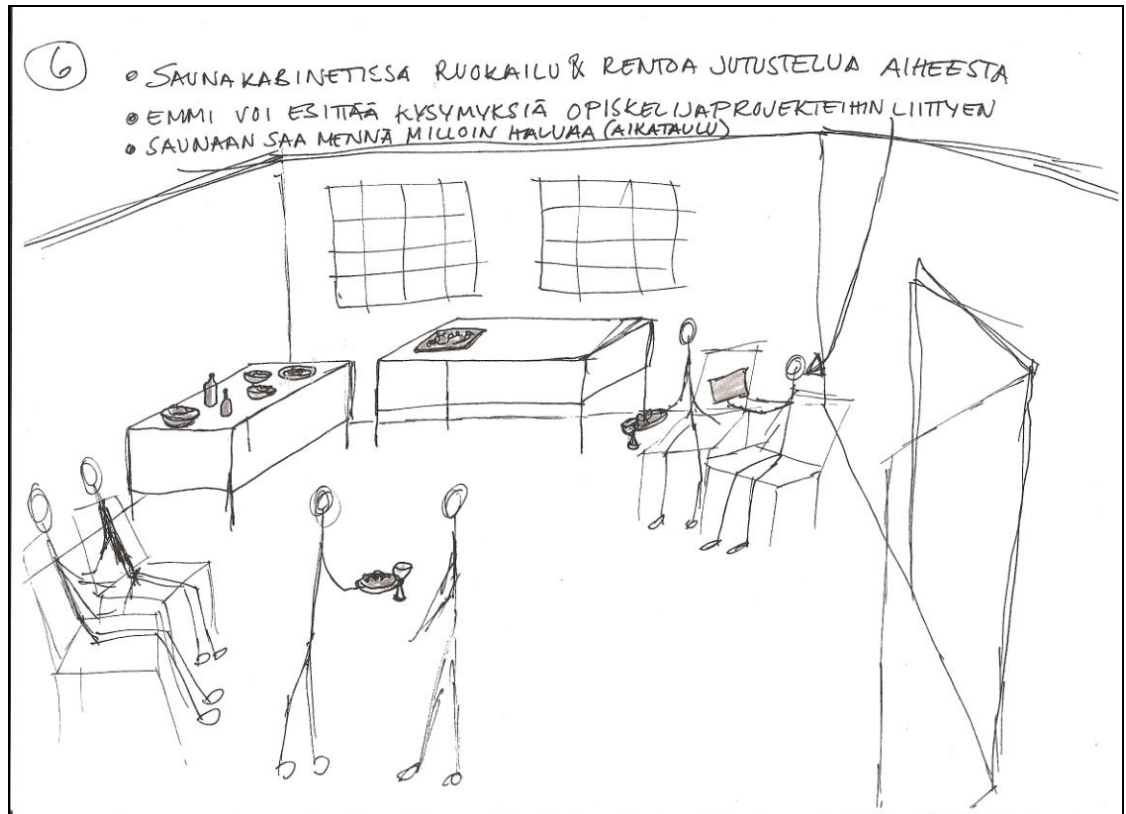 6
• SAUNAKABINETISSA RUOKAILU & RENTOA JUTUSTELUA AIHEESTA
• EMMI VOI ESITTÄÄ KYSYMYKSIÄ OPISKELIJAPROJEKTEIHIN LIITTYEN
• SAUNAAN SAA MENNÄ MILLOIN HALUAA (AIKATAULU)